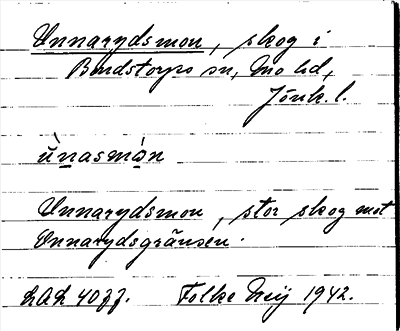 Unnarydsmon, skog i
Bondstorps sn, Mo hd,
Jönk. l.
ùnasmòn
Unnarydsmon, stor skog mot
Unnarydsgränsen.
LAL 4077. Folke Neij 1942.